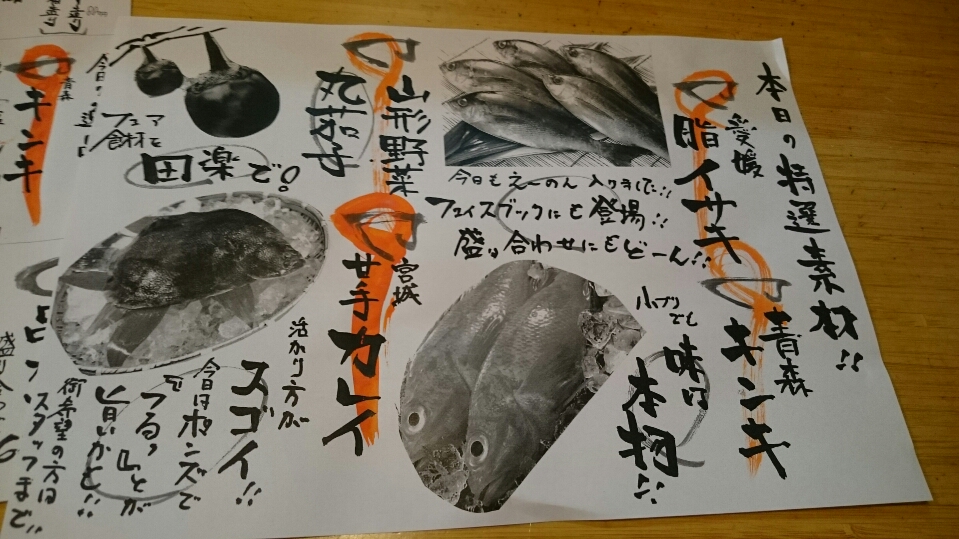 本日の特選素材!!
愛媛
脂イサキ
今日もえーのん入りました!!
フェイスブックにも登場!!
盛り合わせにもどーん!!
青森
キンキ
小ブリでも
味は
本物!!
山形野菜
丸茄子
フェア
食材を
田楽で!
宮城
カレイ
活かり方が
スゴイ!!
今日はポンズで
旨いかと!!
御希望の方は
スタッフまで!!
青森
キンキ